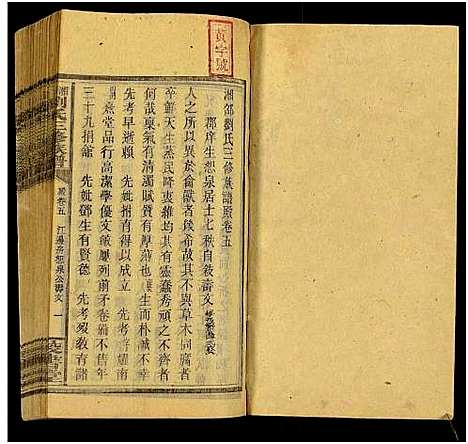 黃字號
湘邵劉氏三修族譜殿卷五
郡庠生想泉居士七秩自敘壽文
人之所以異於禽獸者幾希故其不與草木同腐者
鮮矣天生蒸民降衷維均其有靈蠢秀頑之不齊者
何哉稟氣有清濁賦質有厚薄也生而朴誠不幸
先考早逝賴 先妣捐有得以成立 先考耀南
熹堂品行高潔學優文 屢列前矛卷雖不售年
三十九捐館 先妣鄧生有賢德 先考歿敎育諸
湘 劉氏三修族譜
殿卷五 江邊房想泉公壽文 一